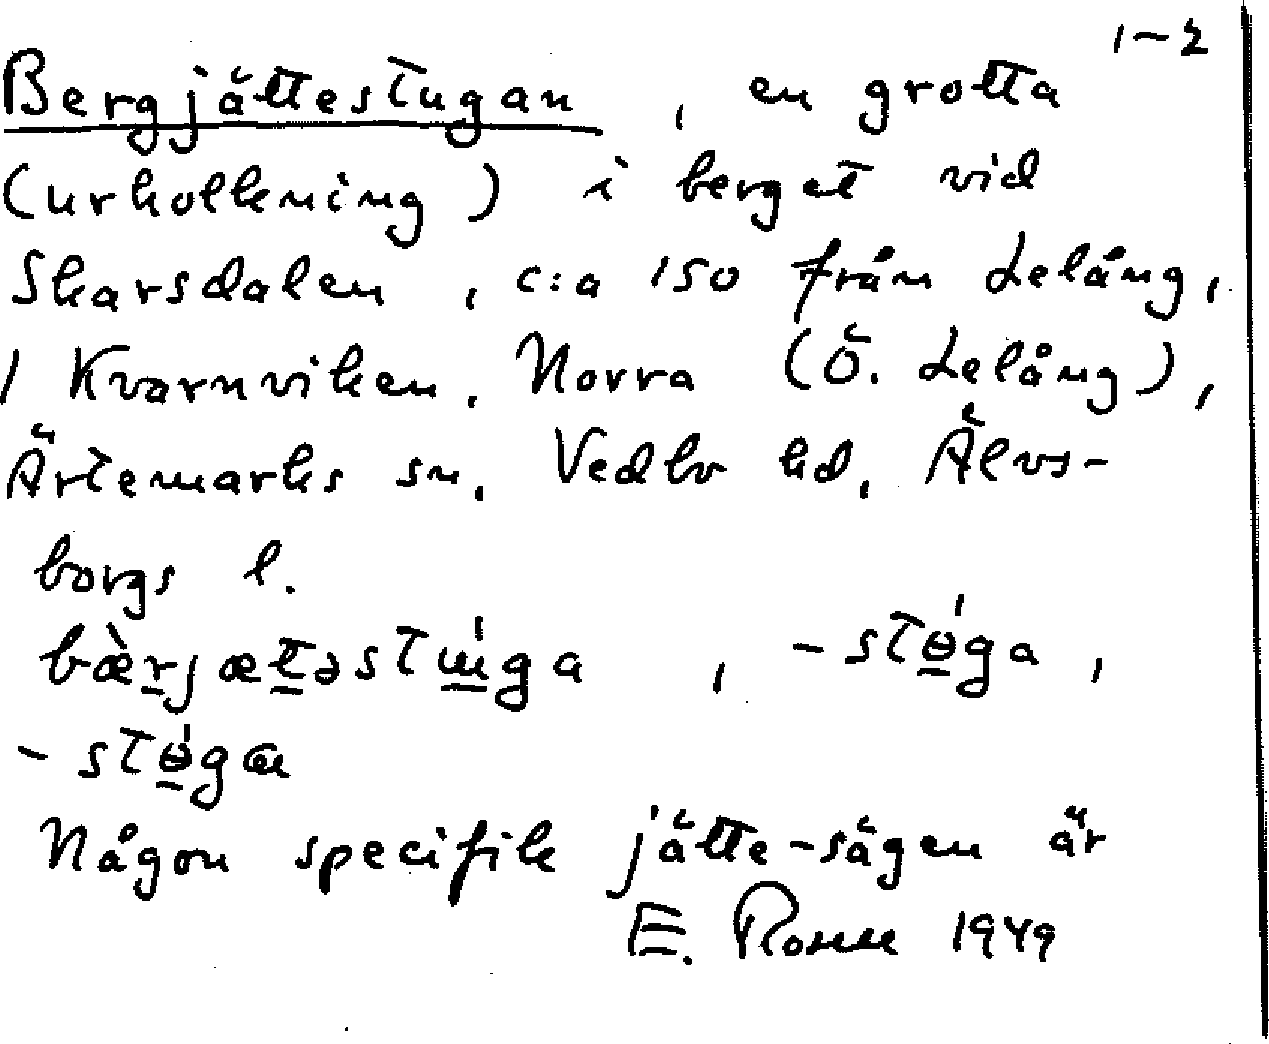 1-2
Bergjättestugan, en grotta
(urholkning) i berget vid
Skarsdalen, c:a 150 från Lelång,
/ Kvarnviken, Norra (Ö. Lelång),
Ärtemarks sn, Vedbo hd, Älvs-
borgs l.
bæ̀rjætəstɯ́ga, -stɵ́ga,
-stɵ́gæ
Någon specifik jätte-sägen är
E. 1949